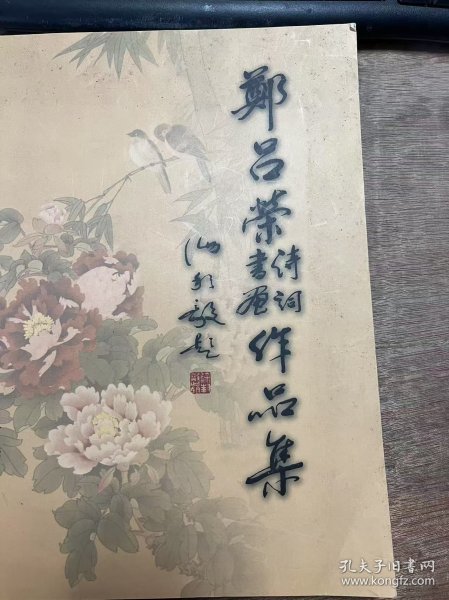 鄭吕榮詩詞書畫作品集
孔夫子旧书网
www.kongfz.com